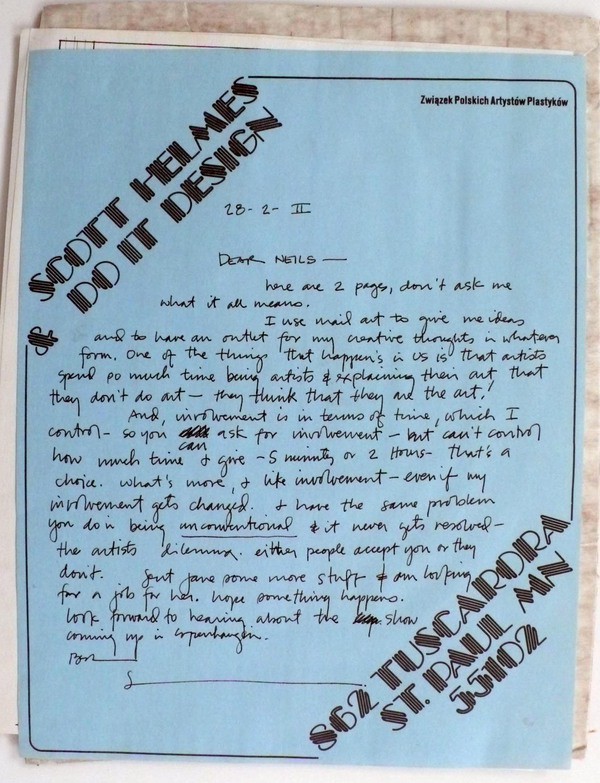 Związek Polskich Artystów Plastyków
SCOTT HELMES
& DO IT DESIGN
28-2-II
DEAR NEILS —
here are 2 pages, don't ask me
what it all means.
I use mail art to give me ideas
and to have an outlet for my creative thoughts in whatever
form. One of the things that happen's in US is that artists
spend so much time being artists & explaining their art, that
they don't do art — they think that they are the art!
And, involvement is in terms of time, which I
control - so you can ask for involvement - but can't control
how much time I give - 5 minutes or 2 Hours - that's a
choice. what's more, I like involvement - even if my
involvement gets changed. I have the same problem
you do in being unconventional & it never gets resolved -
the artists dilemma. either people accept you or they
don't. Sent Jane some more stuff & am looking
for a job for her. hope something happens.
look forward to hearing about the show
coming up in Copenhagen.
862 TUSCARORA
ST. PAUL MN
55102